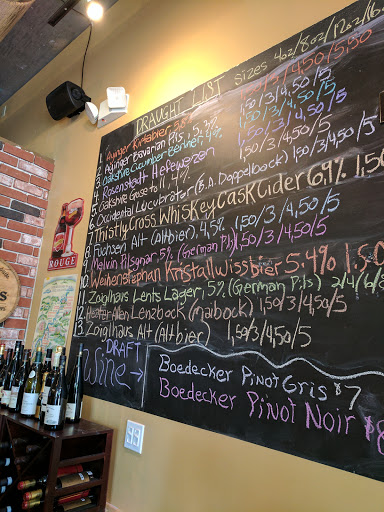 DRAUGHT LIST sizes 4oz/8oz/12oz/16oz
1. Ayinger Kirtabier 5.8% 1.50/3/4.50/5.50
2. Ayinger Bavarian Pils, 5.3% 1.50/3/4.50/5
3. Oakshire Cucumber Berliner, 4% 1.50/3/4.50/5
4. Rosenstadt Hefeweizen 1.50/3/4.50/5
5. Oakshire Gose to 11, 4% 1.50/3/4.50/5
6. Occidental Lucubrator (B.A. Doppelbock) 1.50/3/4.50/5
7. Thistly Cross Whiskey Cask Cider 6.9% 1.50
8. Fuchsen Alt (Altbier), 4.5% 1.50/3/4.50/5
9. Melvin Pilsgnar 5% (German Pils) 1.50/3/4.50/5
10. Weihenstephan Kristallwissbier 5.4% 1.50
11. Zoiglhaus Lents Lager, 5% (German Pils) 2/4/6/8
12. Heater Allen Lenzbock (maibock) 1.50/3/4.50/5
13. Zoiglhaus Alt (Altbier) 1.50/3/4.50/5
DRAFT
Wine →
Boedecker Pinot Gris $7
Boedecker Pinot Noir $8
ROUGE